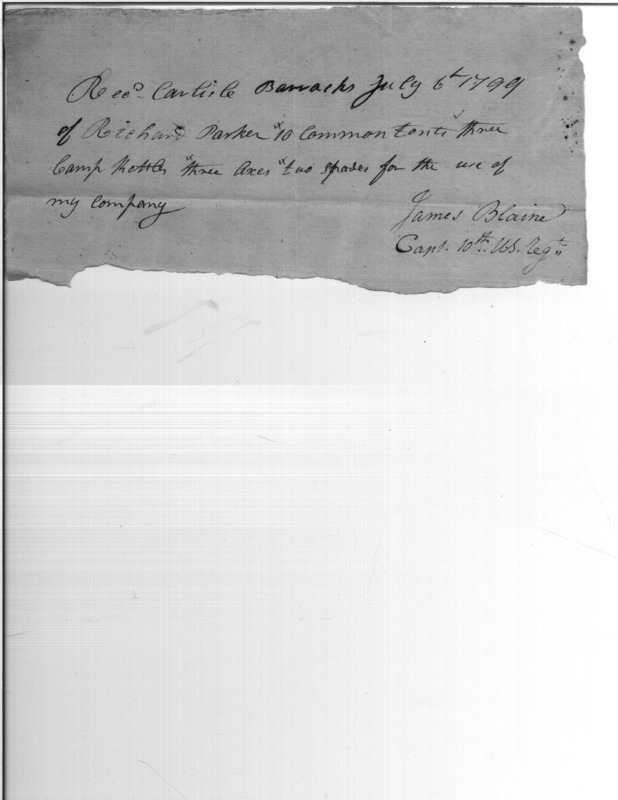 Recd Carlisle Barracks July 6th 1799
of Richard Parker x 10 Common tents x three
Camp Kettles x three Axes x two Spades for the use of
my Company
James Blaine
Capt. 10th. US. Regt.